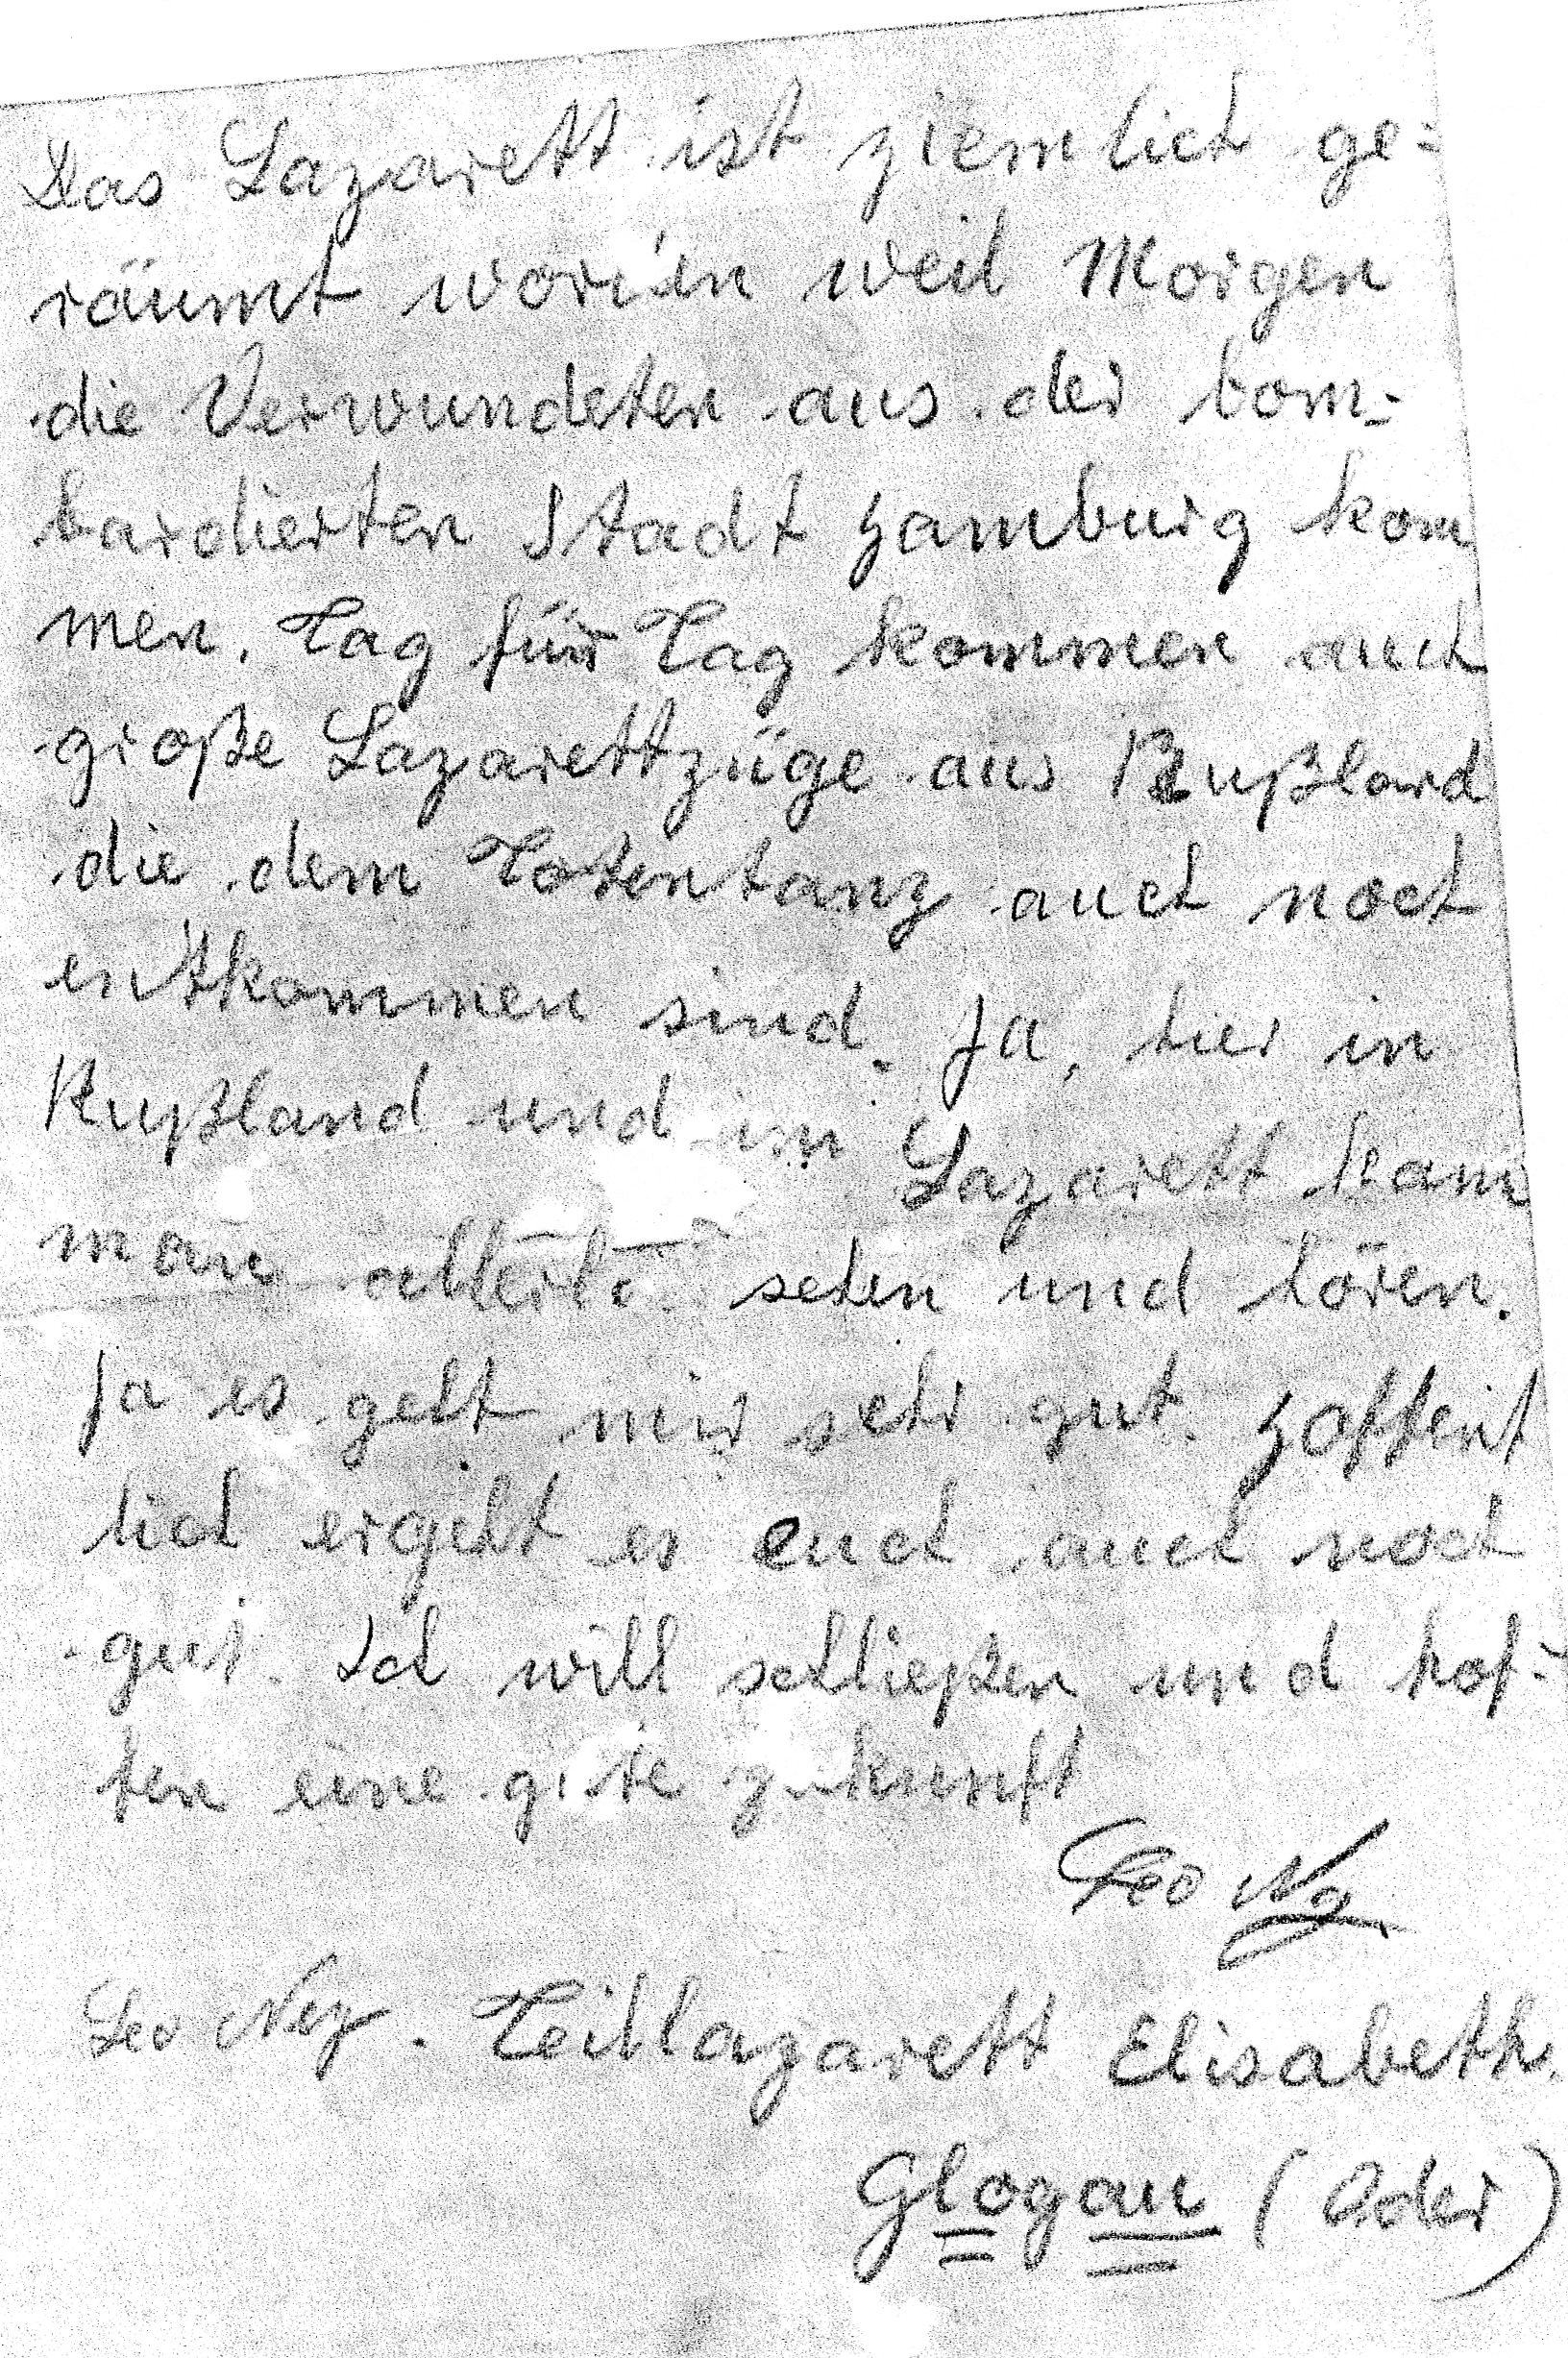 Das Lazarett ist ziemlich ge=
räumt worden weil Morgen
die Verwundeten aus der bom=
bardierten Stadt Hamburg kom
men. Tag für Tag kommen auch
große Lazarettzüge aus Rußland
die dem Totentanz auch noch
entkommen sind. Ja, hier in
Rußland und im Lazarett kann
man allerlei sehen und hören.
Ja es geht mir sehr gut. Hoffent
lich ergeht es euch auch noch
gut. Ich will schließen und hof=
fen eine gute zukunft
Leo
Leo Ney. Teillazarett Elisabeth.
Glogau (Oder)